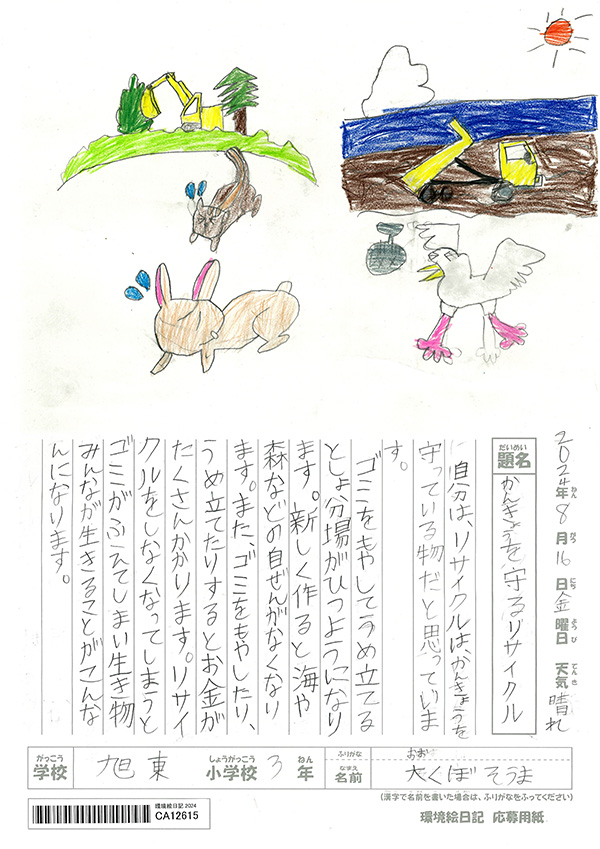 2024年8月16日金曜日 天気晴れ
ねん がつ にち ようび てんき
だいめい
題名 かんきょうを守るリサイクル
自分は、リサイクルは、かんきょうを
守っている物だと思っていま
す。
ゴミをもやしてうめ立てる
としょ分場がひつようになり
ます。新しく作ると海や
森などの自ぜんがなくなり
ます。また、ゴミをもやしたり、
うめ立てたりするとお金が
たくさんかかります。リサイ
クルをしなくなってしまうと
ゴミがふえてしまい生き物
みんなが生きることがこんな
んになります。
がっこう しょうがっこう ねん ふりがな おお
学校 旭東 小学校 3年 なまえ 名前 大くぼそうま
(漢字で名前を書いた場合は、ふりがなをふってください)
環境絵日記 2024
CA12615
環境絵日記 応募用紙